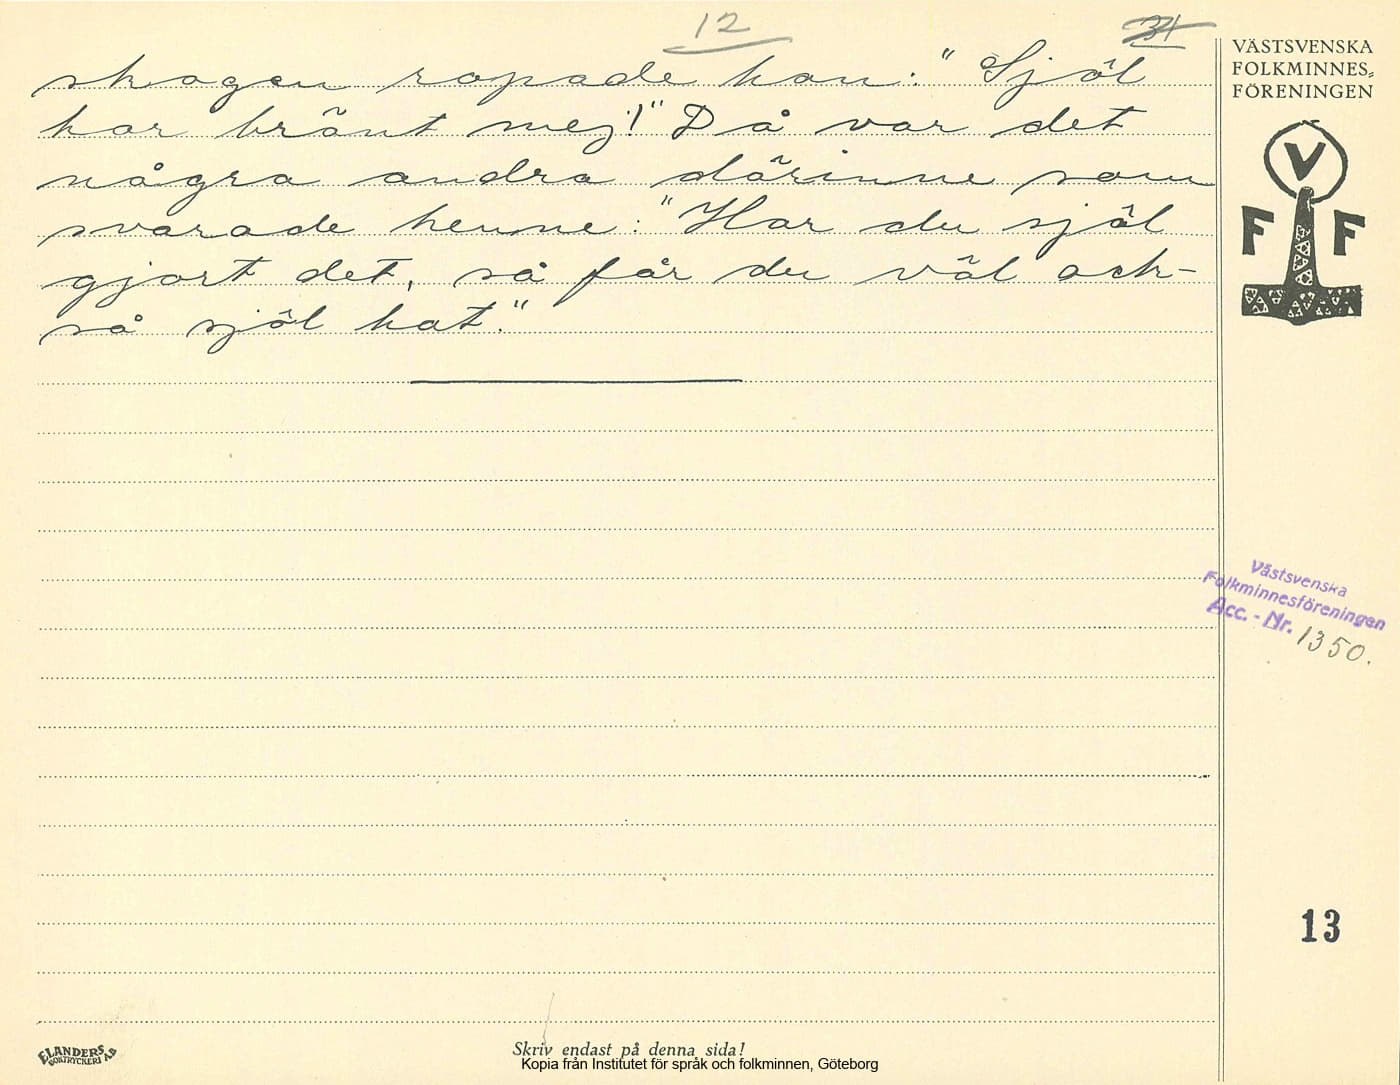 12
31
skogen ropade hon: "Själ
har bränt mej!" Då var det
några andra därinne som
svarade henne: "Har du själ
gjort det, så får du väl ock-
så själ hat."
VÄSTSVENSKA
FOLKMINNES-
FÖRENINGEN
V
F F
Västsvenska
Folkminnesföreningen
Acc. - Nr. 1350.
13
ELANDERS
BOKTRYCKERI AB
Skriv endast på denna sida!
Kopia från Institutet för språk och folkminnen, Göteborg